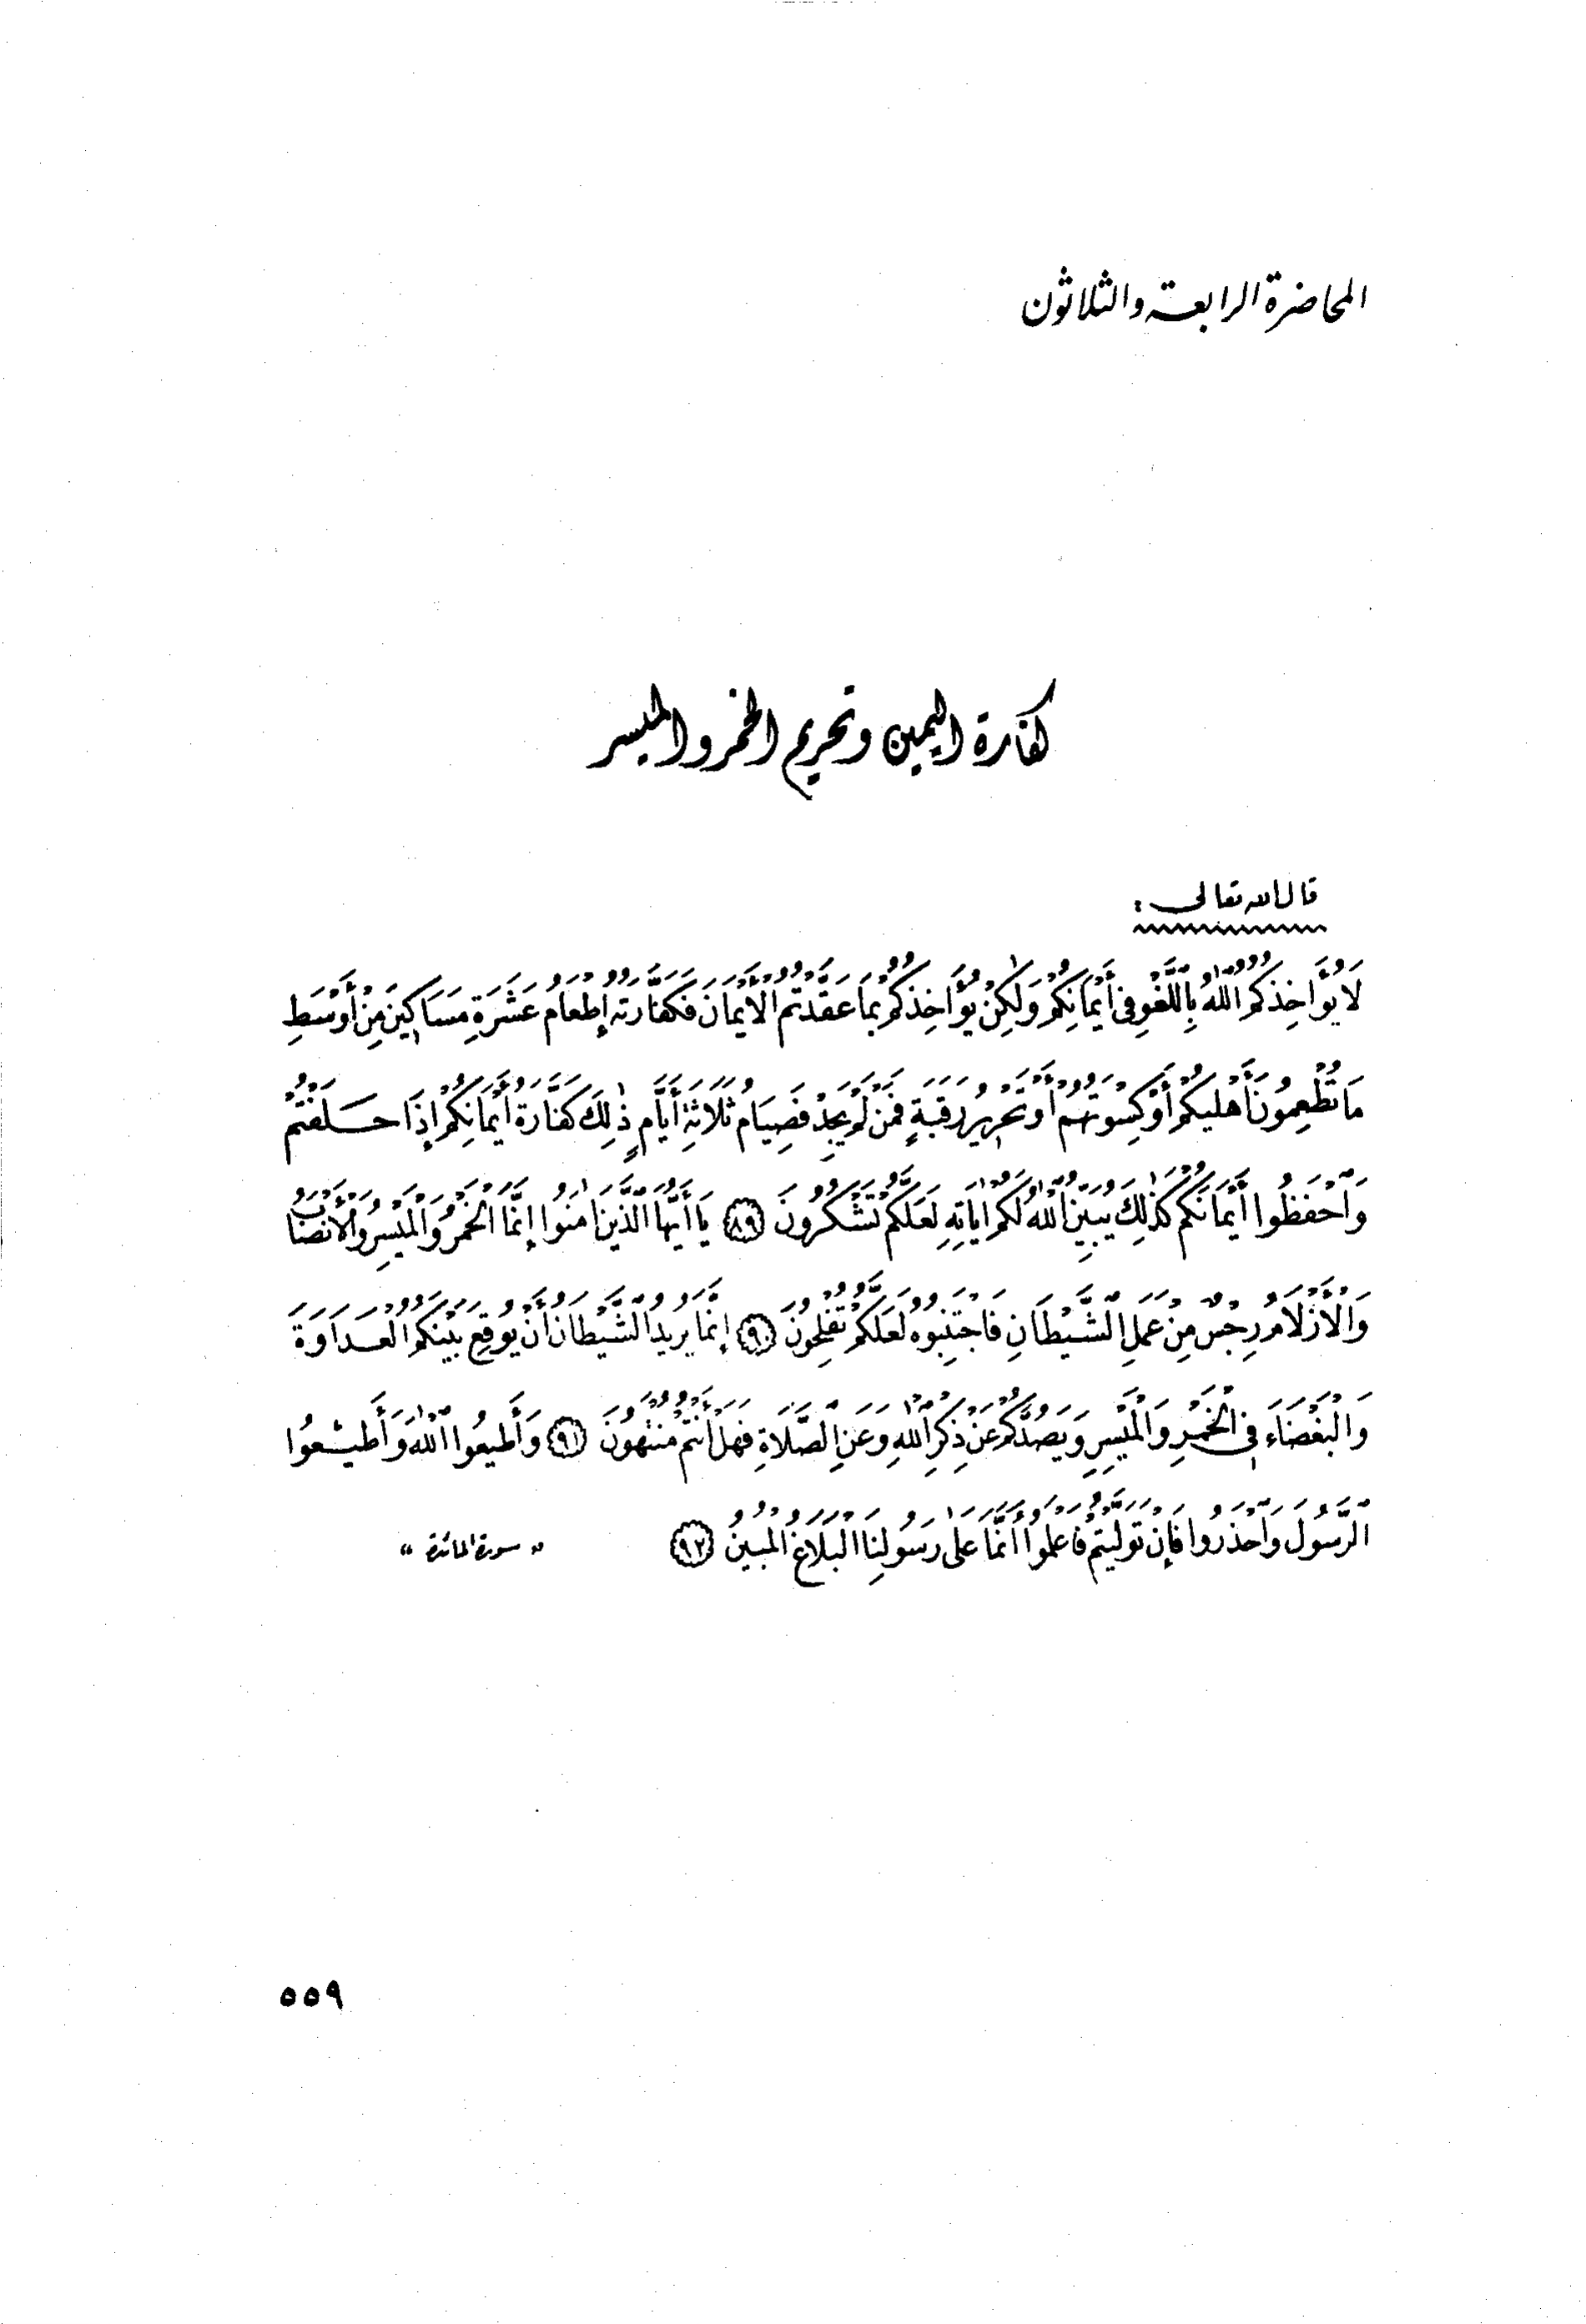 المحاضرة الرابعة والثلاثون
كفارة اليمين وتحريم الخمر والميسر
قال الله تعالى :
لَا يُؤَاخِذُكُمُ اللَّهُ بِاللَّغْوِ فِي أَيْمَانِكُمْ وَلَٰكِنْ يُؤَاخِذُكُمْ بِمَا عَقَّدْتُمُ الْأَيْمَانَ فَكَفَّارَتُهُ إِطْعَامُ عَشَرَةِ مَسَاكِينَ مِنْ أَوْسَطِ
مَا تُطْعِمُونَ أَهْلِيكُمْ أَوْ كِسْوَتُهُمْ أَوْ تَحْرِيرُ رَقَبَةٍ فَمَنْ لَمْ يَجِدْ فَصِيَامُ ثَلَاثَةِ أَيَّامٍ ذَٰلِكَ كَفَّارَةُ أَيْمَانِكُمْ إِذَا حَلَفْتُمْ
وَاحْفَظُوا أَيْمَانَكُمْ كَذَٰلِكَ يُبَيِّنُ اللَّهُ لَكُمْ اٰيَاتِهِ لَعَلَّكُمْ تَشْكُرُونَ (٨٩) يَا أَيُّهَا الَّذِينَ اٰمَنُوا إِنَّمَا الْخَمْرُ وَالْمَيْسِرُ وَالْأَنْصَابُ
وَالْأَزْلَامُ رِجْسٌ مِنْ عَمَلِ الشَّيْطَانِ فَاجْتَنِبُوهُ لَعَلَّكُمْ تُفْلِحُونَ (٩٠) إِنَّمَا يُرِيدُ الشَّيْطَانُ أَنْ يُوقِعَ بَيْنَكُمُ الْعَدَاوَةَ
وَالْبَغْضَاءَ فِي الْخَمْرِ وَالْمَيْسِرِ وَيَصُدَّكُمْ عَنْ ذِكْرِ اللَّهِ وَعَنِ الصَّلَاةِ فَهَلْ أَنْتُمْ مُنْتَهُونَ (٩١) وَأَطِيعُوا اللَّهَ وَأَطِيعُوا
الرَّسُولَ وَاحْذَرُوا فَإِنْ تَوَلَّيْتُمْ فَاعْلَمُوا أَنَّمَا عَلَىٰ رَسُولِنَا الْبَلَاغُ الْمُبِينُ (٩٢) « سورة المائدة »
٥٥٩